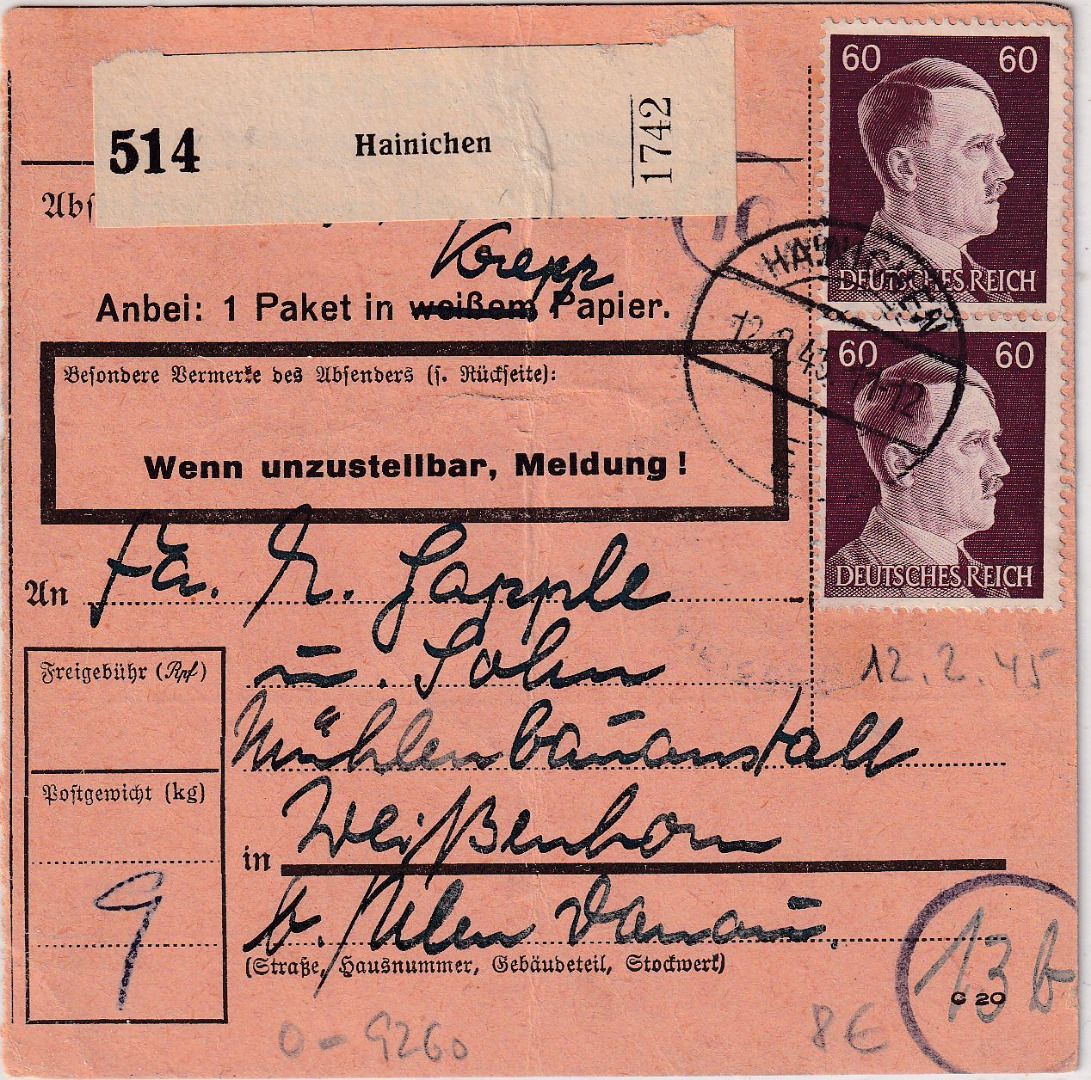 514 Hainichen 1742
60 60
DEUTSCHES REICH
Abs
Krepp
Anbei: 1 Paket in weißem Papier.
HAINICHEN
12.2.43 11-12
60 60
DEUTSCHES REICH
Besondere Vermerke des Absenders (s. Rückseite):
Wenn unzustellbar, Meldung!
An Fa. Gapple
u. Sohn
12.2.45
Freigebühr (Rpf)
Mühlenbauanstalt
Postgewicht (kg)
in Weißenhorn
9
b./Ulm Donau.
(Straße, Hausnummer, Gebäudeteil, Stockwerk)
13b
C 20
0-9260
8€